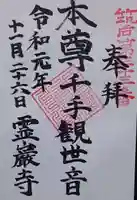 奉拝
本尊千手観世音
令和元年
十一月二十六日
霊巌寺